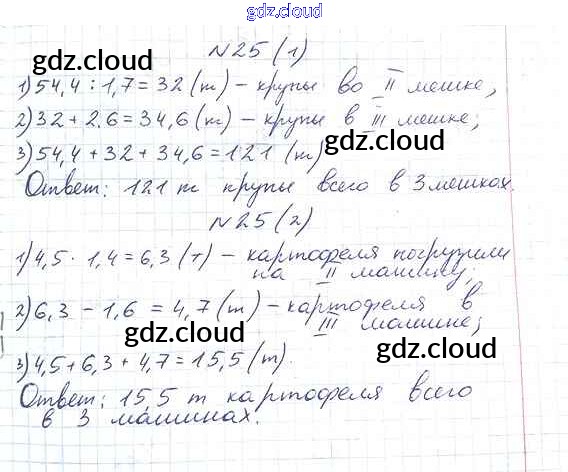 gdz.cloud
№25(1)
gdz.cloud
1) 54,4 : 1,7 = 32 (т) – крупы во II мешке,
gdz.cloud
2) 32 + 2.6 = 34,6 (т) – крупы в III мешке;
gdz.cloud
3) 54,4 + 32 + 34,6 = 121 (т)
Ответ: 121 т крупы всего в 3 мешках.
№25(2)
gdz.cloud
1) 4,5 · 1,4 = 6,3 (т) – картофеля погрузили
на II машину;
gdz.cloud
2) 6,3 – 1,6 = 4,7 (т) – картофеля в
III машине;
gdz.cloud
gdz.cloud
3) 4,5 + 6,3 + 4,7 = 15,5 (т).
Ответ: 15,5 т картофеля всего
gdz.cloud
в 3 машинах.